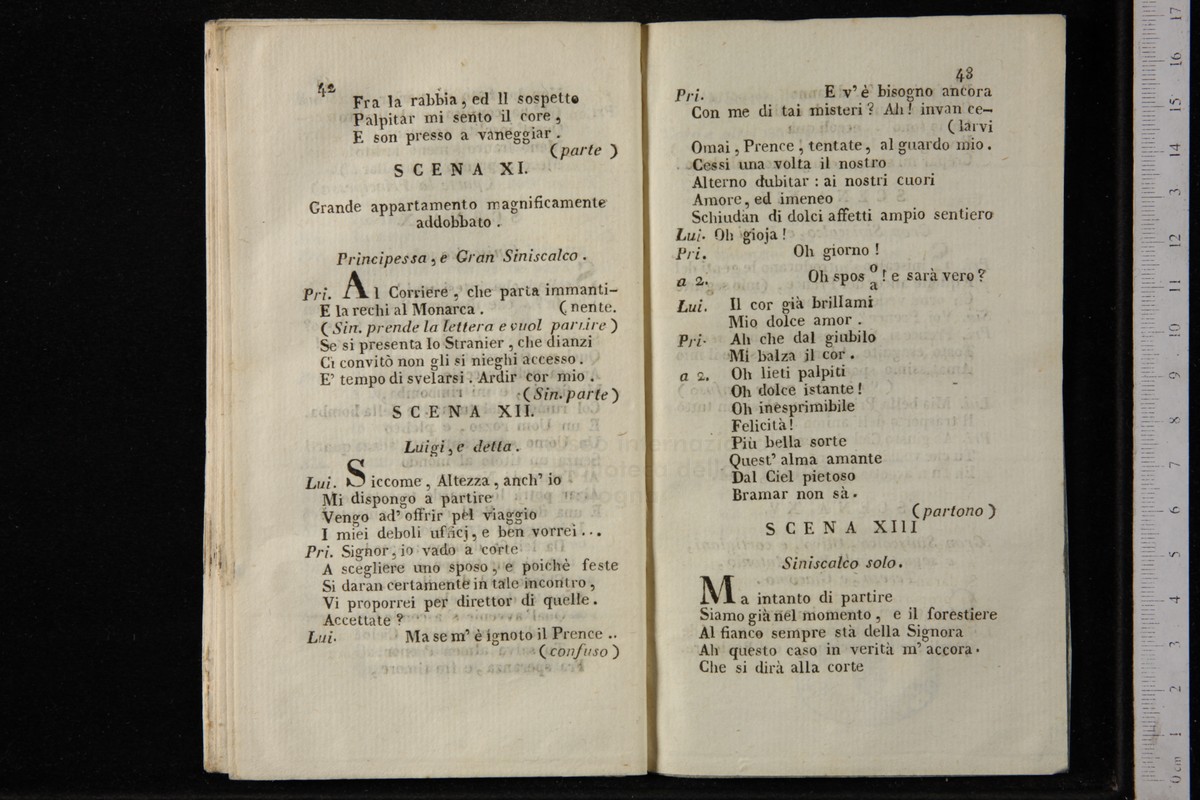 42
Fra la rabbia, ed Il sospetto
Palpitar mi sento il core,
E son presso a vaneggiar.
(parte)
SCENA XI.
Grande appartamento magnificamente
addobbato.
Principessa, e Gran Siniscalco.
Pri. Al Corriere, che parta immanti-
E la rechi al Monarca. (nente.
(Sin. prende la lettera e vuol partire)
Se si presenta lo Stranier, che dianzi
Ci convitò non gli si nieghi accesso.
E' tempo di svelarsi. Ardir cor mio.
(Sin. parte)
SCENA XII.
Luigi, e detta.
Lui. Siccome, Altezza, anch' io
Mi dispongo a partire
Vengo ad' offrir pel viaggio
I miei deboli uficj, e ben vorrei...
Pri. Signor, io vado a corte
A scegliere uno sposo, e poichè feste
Si daran certamente in tale incontro,
Vi proporrei per direttor di quelle.
Accettate?
Lui. Ma se m' è ignoto il Prence ..
(confuso)
43
Pri. E v' è bisogno ancora
Con me di tai misteri? Ah! invan ce-
(larvi
Omai, Prence, tentate, al guardo mio.
Cessi una volta il nostro
Alterno dubitar: ai nostri cuori
Amore, ed imeneo
Schiudan di dolci affetti ampio sentiero
Lui. Oh gioja!
Pri. Oh giorno!
a 2. Oh spos o/a! e sarà vero?
Lui. Il cor già brillami
Mio dolce amor.
Pri. Ah che dal giubilo
Mi balza il cor.
a 2. Oh lieti palpiti
Oh dolce istante!
Oh inesprimibile
Felicità!
Più bella sorte
Quest' alma amante
Dal Ciel pietoso
Bramar non sà.
(partono)
SCENA XIII
Siniscalco solo.
Ma intanto di partire
Siamo già nel momento, e il forestiere
Al fianco sempre stà della Signora
Ah questo caso in verità m' accora.
Che si dirà alla corte